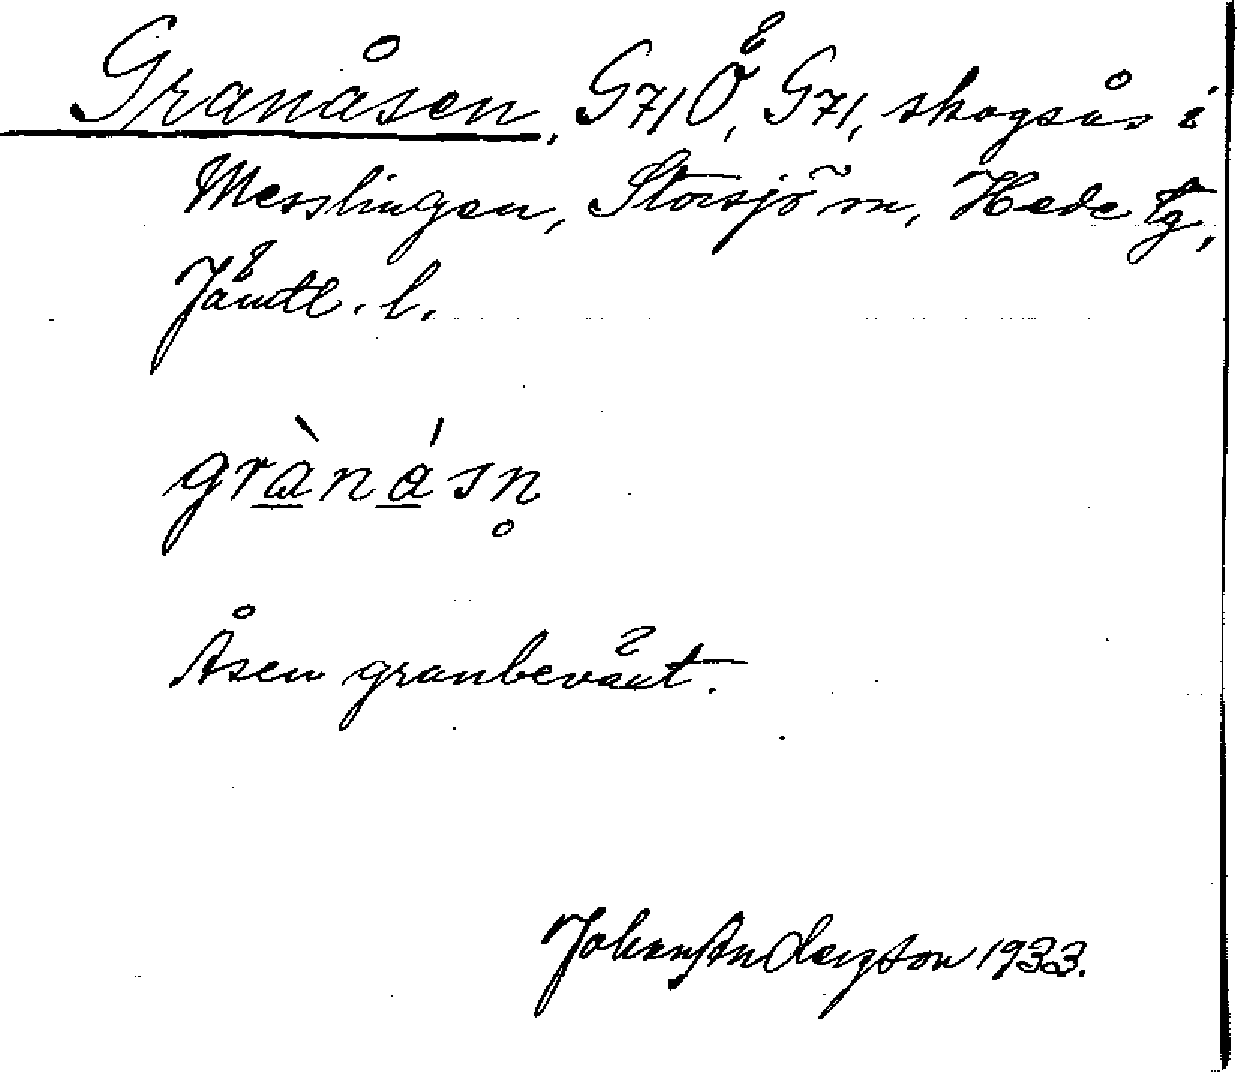 Granåsen, G71Ö, G71, skogsås i
Messlingen, Storsjö sn, Hede tg,
Jämtl. l.
grànásn̥
Åsen granbeväxt.
Johan Andersson 1933.